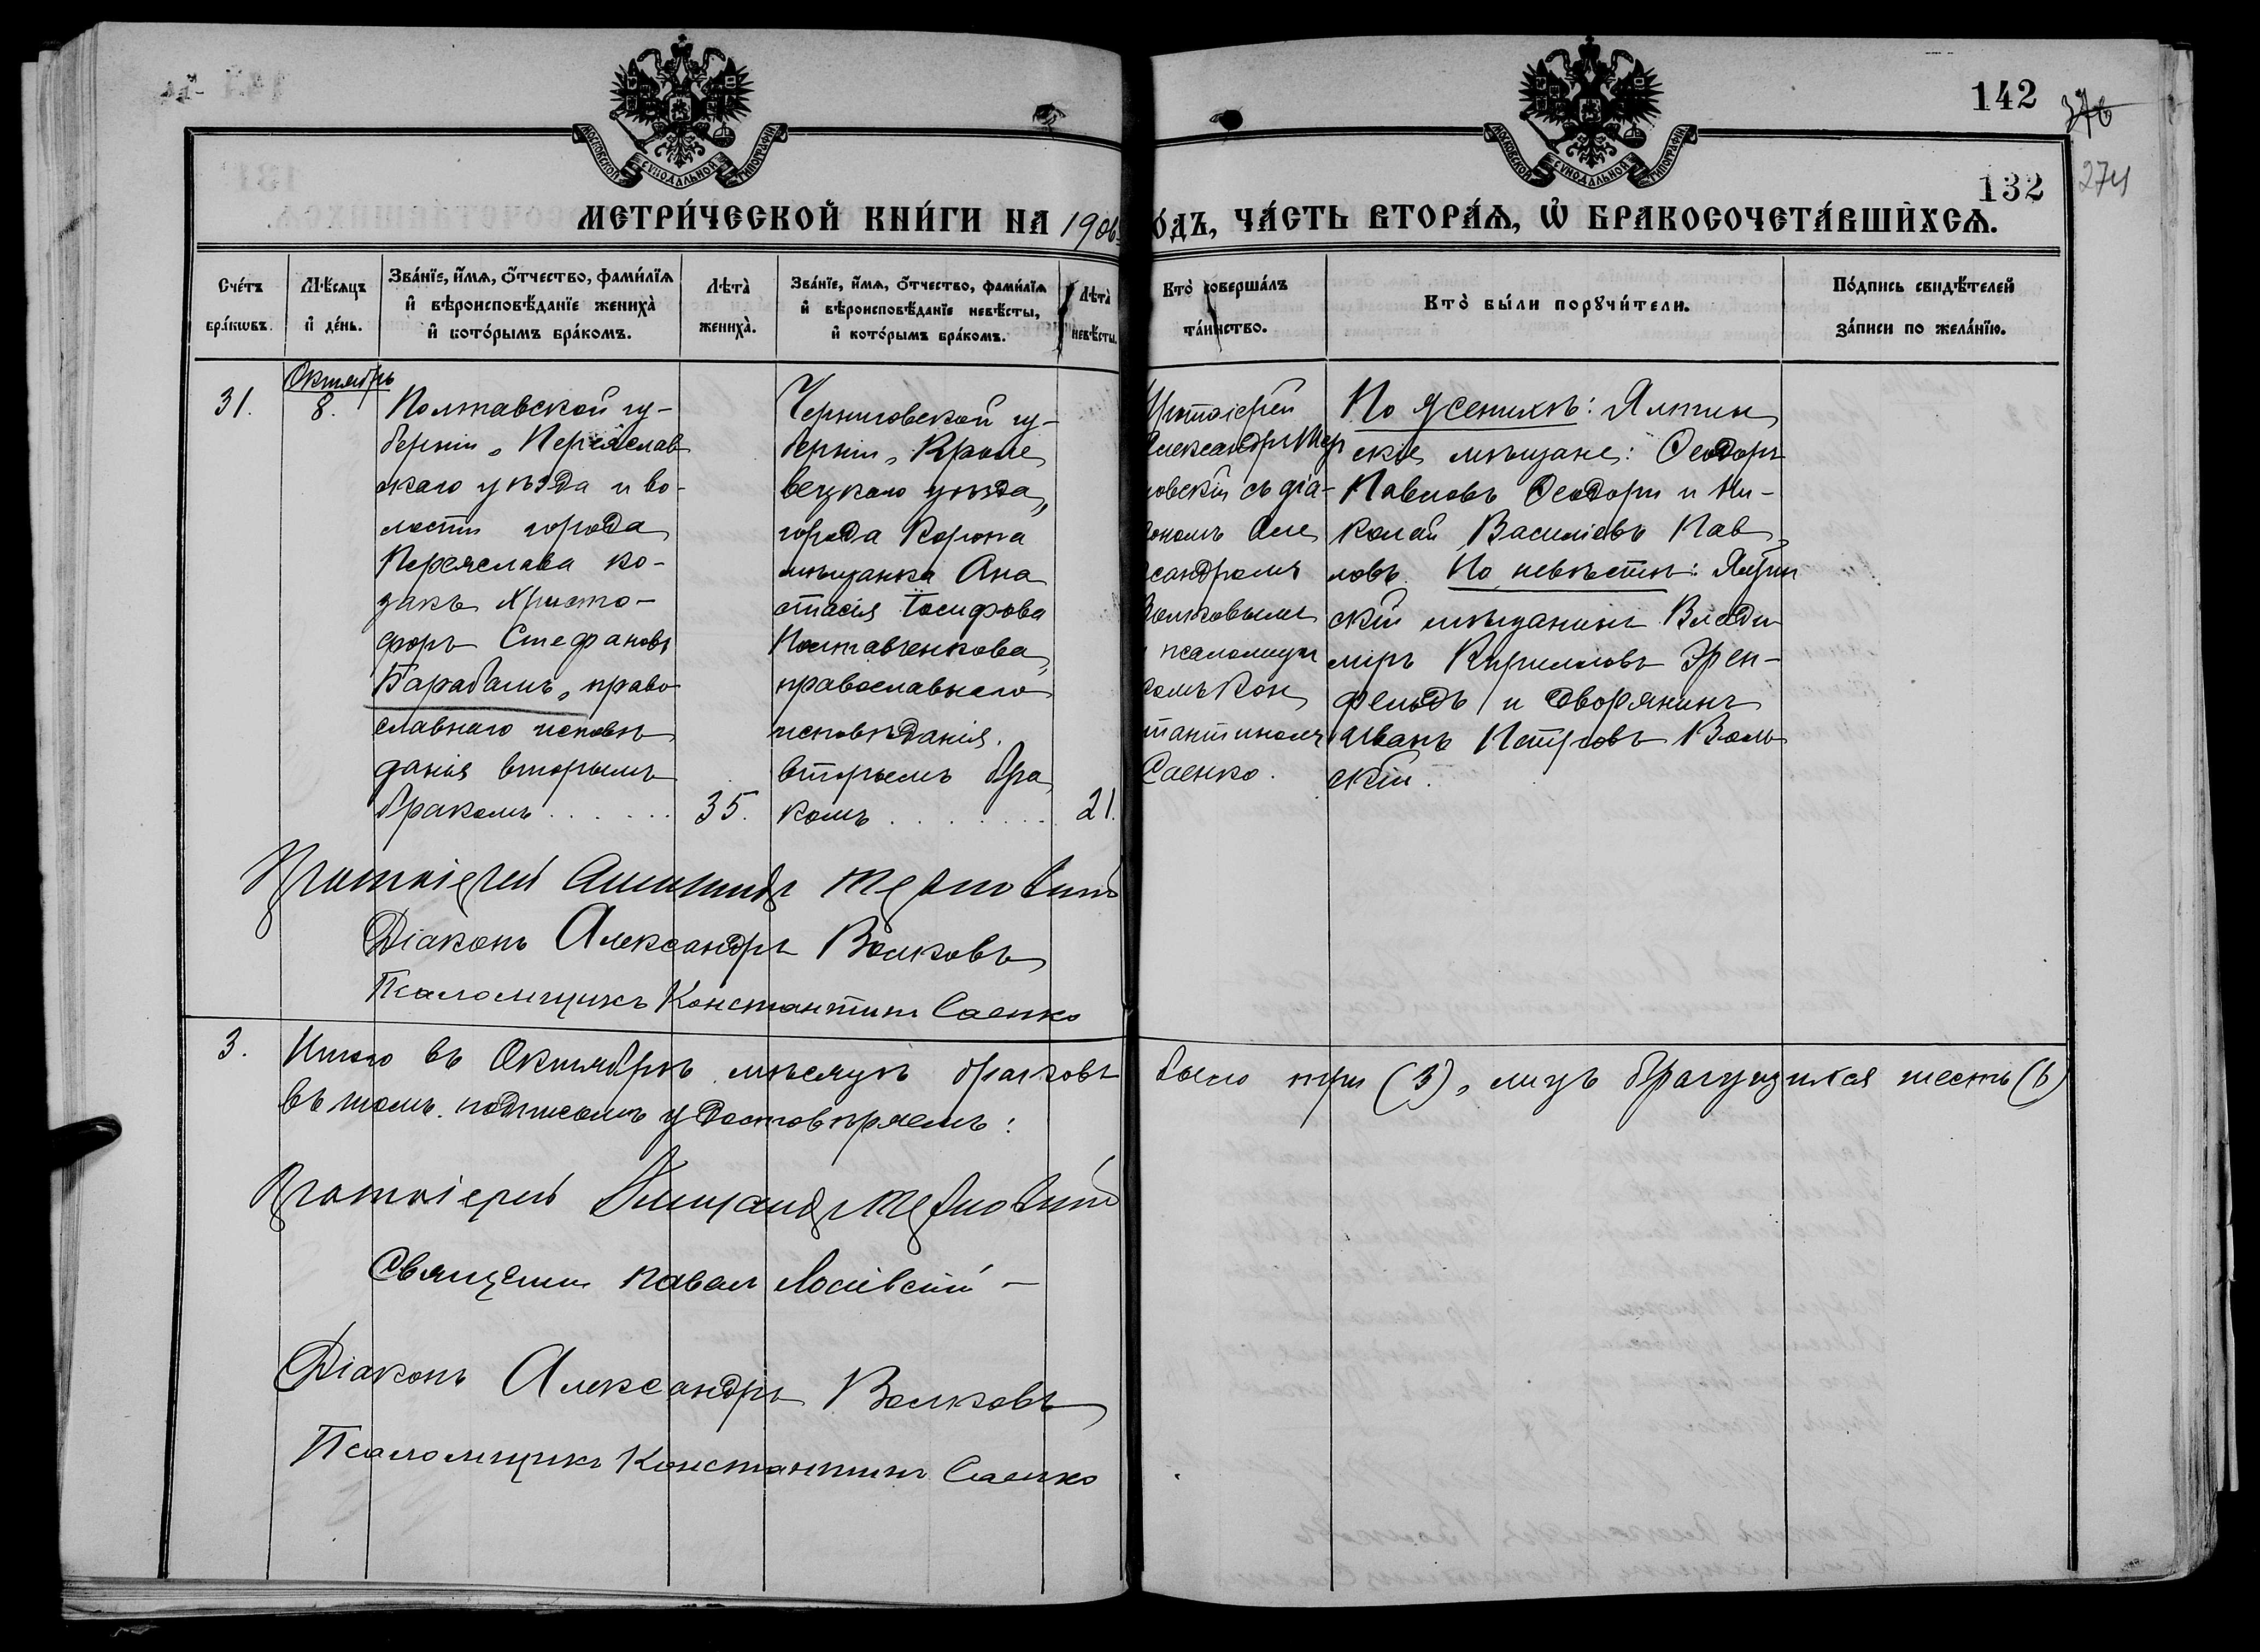 142
376
274
132
МОСКОВСКОЙ СѴНОДАЛЬНОЙ ТИПОГРАФІИ
МОСКОВСКОЙ СѴНОДАЛЬНОЙ ТИПОГРАФІИ
МЕТРИ́ЧЕСКОЙ КНИ́ГИ НА 1906
О́ДЪ, ЧА́СТЬ ВТОРА́Ѧ, Ѡ҆ БРАКОСОЧЕТА́ВШИХСѦ.
Сче́тъ
бра́кѡвъ.
Мѣ́сѧцъ
и҆ де́нь.
Зва́нїе, и҆́мѧ, ѻ҆́тчество, фами́лїѧ
и҆ вѣроисповѣ́данїе жениха̀
и҆ кото́рымъ бра́комъ.
Лѣта̀
жениха̀.
Зва́нїе, и҆́мѧ, ѻ҆́тчество, фами́лїѧ
и҆ вѣроисповѣ́данїе невѣ́сты,
и҆ кото́рымъ бра́комъ.
Лѣта̀
невѣ́сты.
Кто̀ соверша́лъ
та́инство.
Кто̀ бы́ли порꙋчи́тели.
По́дпись свидѣ́телей
за́писи по жела́нїю.
31.
Октябрь
8.
Полтавской гу-
берніи, Переяслав
скаго уѣзда и во-
лости города
Переяслава ко-
закъ Христо-
форъ Стефановъ
Барабашъ, право
славнаго исповѣ
данія вторымъ
бракомъ . . . . . .
35.
Черниговской гу-
берніи, Кроле
вецкаго уѣзда,
города Коропа
мѣщанка Ана
стасія Іосифова
Полтавченкова,
православнаго
исповѣданія.
вторымъ бра
комъ . . . . . . . .
21.
Протоіерей
Александръ Тер
новскій съ діа-
кономъ Але
ксандромъ
Волковымъ
и псаломщи
комъ Кон
стантиномъ
Саенко.
По женихѣ: Ялтин
скіе мѣщане: Ѳеодоръ
Павловъ Ѳеодори и Ни-
колай Василіевъ Пав
ловъ. По невѣстѣ: Ялтин
скій мѣщанинъ Влади
міръ Кирилловъ Эрен-
фельдъ и дворянинъ
Иванъ Петровъ Воль
скій.
Протоіерей Александръ Терновскій
Діаконъ Александръ Волковъ
Псаломщикъ Константинъ Саенко
3.
Итого въ Октябрѣ мѣсяцѣ браковъ было три (3), лицъ брачущихся шесть (6)
въ томъ подписомъ удостовѣряемъ:
Протоіерей Александръ Терновскій
Священникъ Павелъ
Діаконъ Александръ Волковъ
Псаломщикъ Константинъ Саенко